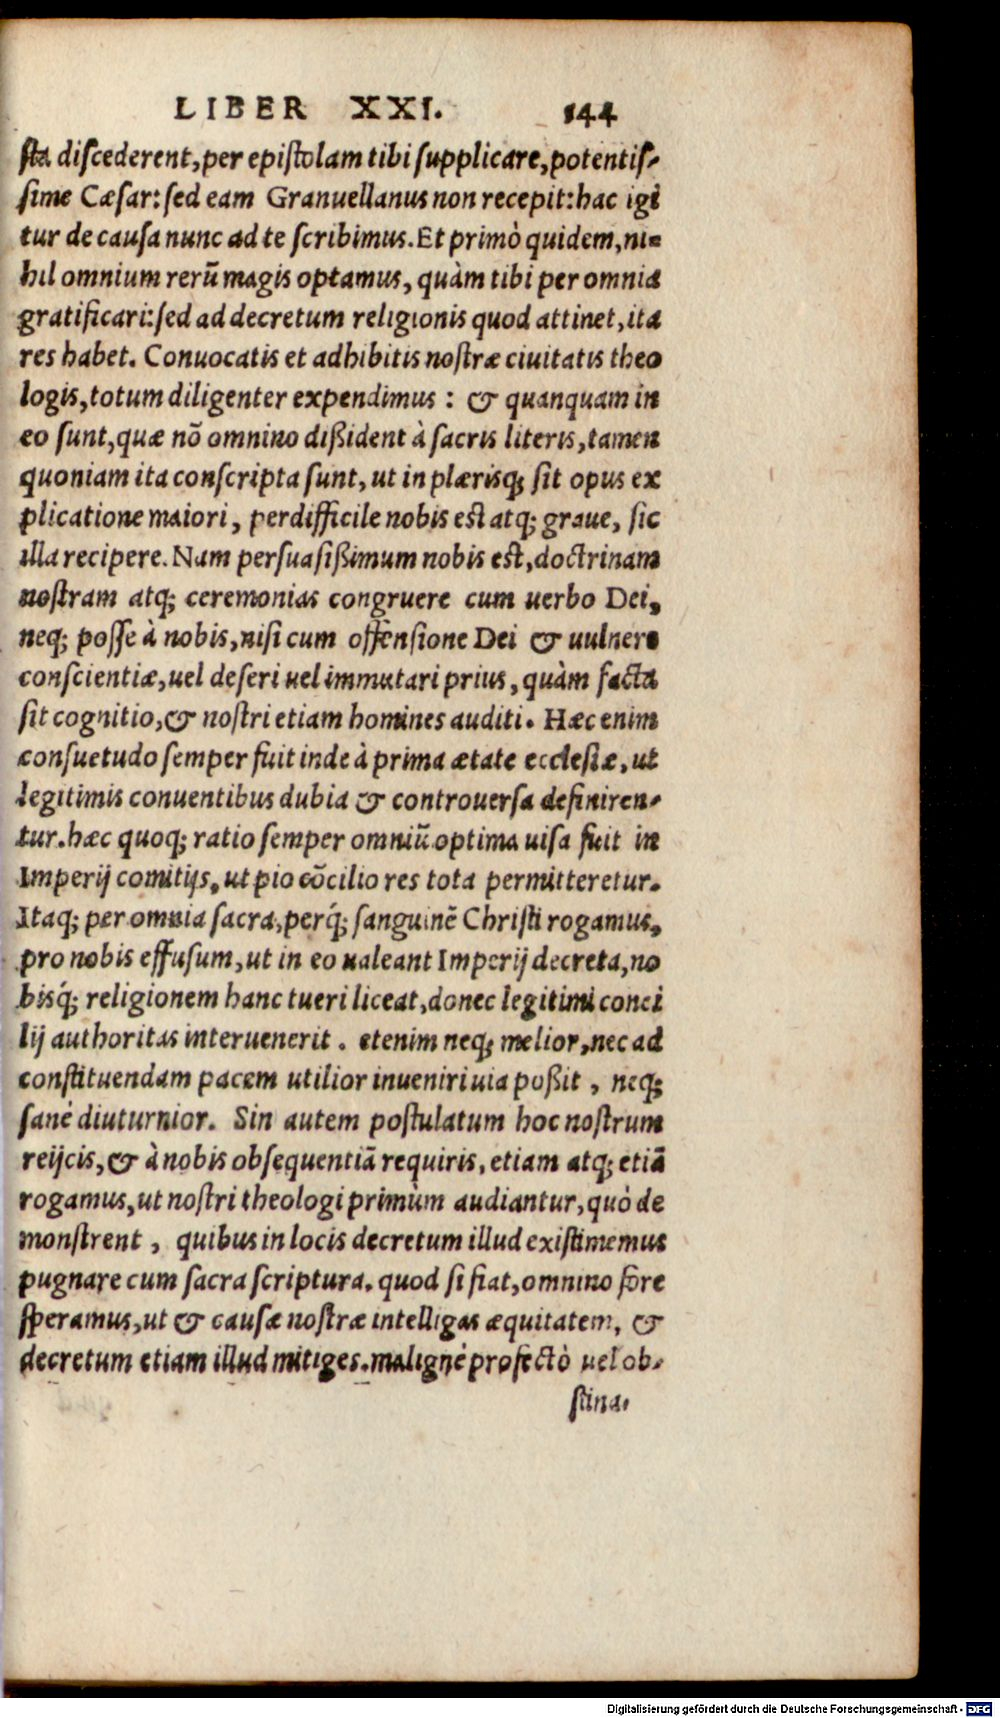 LIBER XXI. 144
sta discederent, per epistolam tibi supplicare, potentis-
sime Cæsar: sed eam Granuellanus non recepit: hac igi
tur de causa nunc ad te scribimus. Et primò quidem, ni=
hil omnium rerū magis optamus, quàm tibi per omnia
gratificari: sed ad decretum religionis quod attinet, ita
res habet. Conuocatis et adhibitis nostræ ciuitatis theo
logis, totum diligenter expendimus : & quanquam in
eo sunt, quæ nō omnino dißident à sacris literis, tamen
quoniam ita conscripta sunt, ut in plærisq; sit opus ex
plicatione maiori, perdifficile nobis est atq; graue, sic
illa recipere. Nam persuasißimum nobis est, doctrinam
nostram atq; ceremonias congruere cum uerbo Dei,
neq; posse à nobis, nisi cum offensione Dei & uulnere
conscientiæ, uel deseri uel immutari prius, quàm facta
sit cognitio, & nostri etiam homines auditi. Hæc enim
consuetudo semper fuit inde à prima ætate ecclesiæ, ut
legitimis conuentibus dubia & controuersa definiren-
tur. hæc quoq; ratio semper omniū optima uisa fuit in
Imperij comitijs, ut pio cōcilio res tota permitteretur.
Itaq; per omnia sacra, perq́; sanguinē Christi rogamus,
pro nobis effusum, ut in eo ualeant Imperij decreta, no
bisq́; religionem hanc tueri liceat, donec legitimi conci
lij authoritas interuenerit. etenim neq; melior, nec ad
constituendam pacem utilior inueniri uia poßit, neq;
sanè diuturnior. Sin autem postulatum hoc nostrum
reijcis, & à nobis obsequentiā requiris, etiam atq; etiā
rogamus, ut nostri theologi primùm audiantur, quò de
monstrent, quibus in locis decretum illud existimemus
pugnare cum sacra scriptura. quod si fiat, omnino fore
speramus, ut & causæ nostræ intelligas æquitatem, &
decretum etiam illud mitiges. malignè profectò uel ob-
stina-
Digitalisierung gefördert durch die Deutsche Forschungsgemeinschaft - DFG